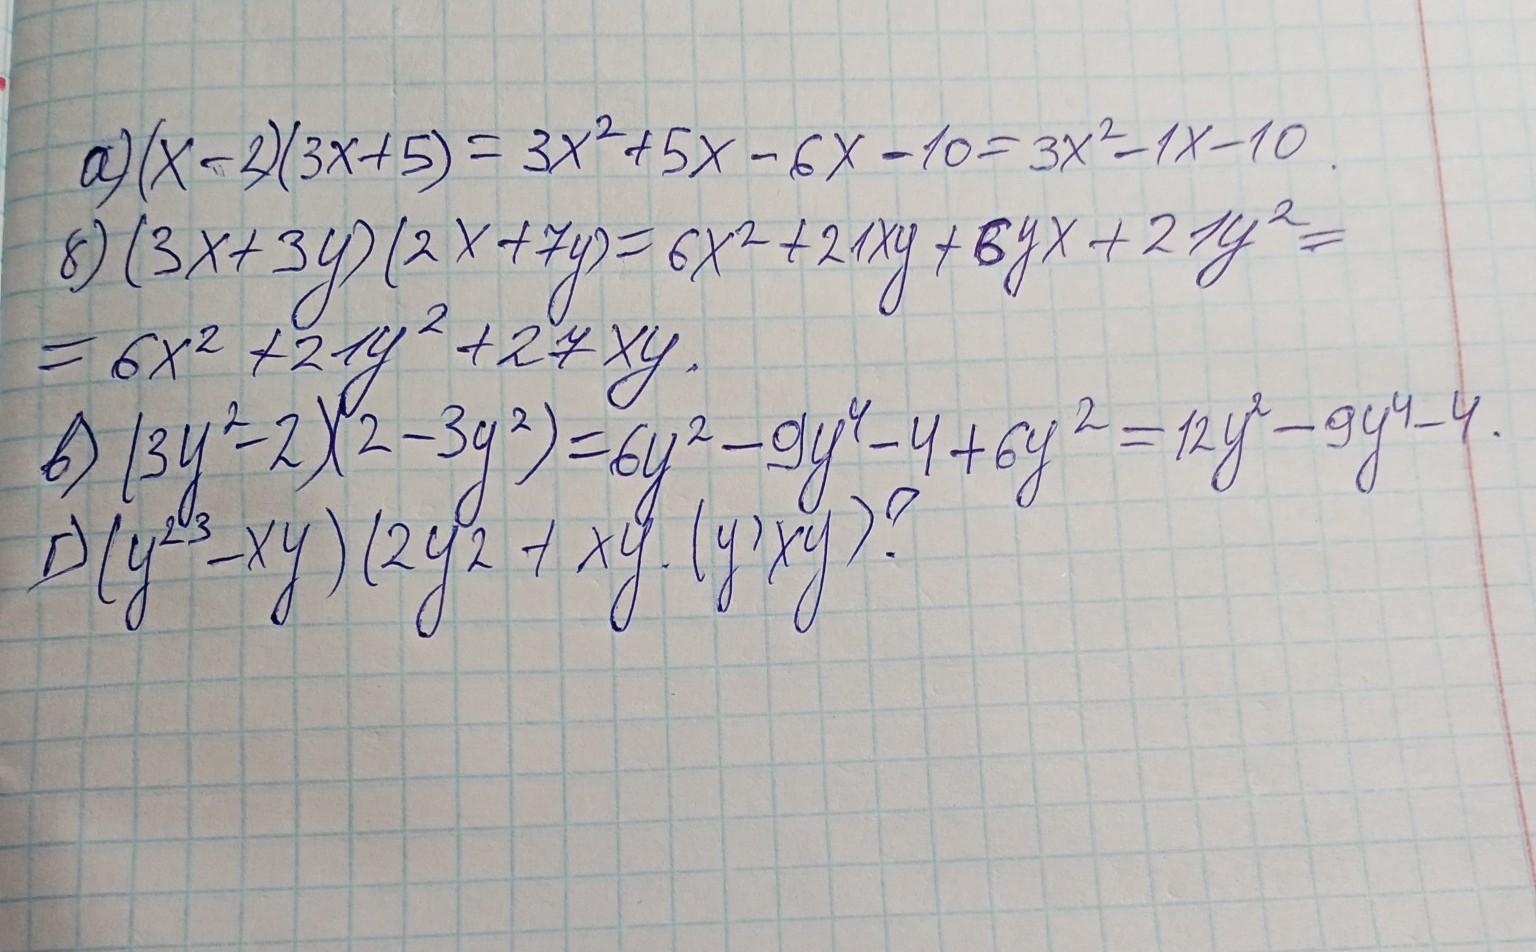 а) (x-2)(3x+5) = 3x²+5x-6x-10 = 3x²-1x-10.
б) (3x+3y)(2x+7y) = 6x²+21xy+6yx+21y² =
= 6x²+21y²+27xy.
в) (3y²-2)(2-3y²) = 6y²-9y⁴-4+6y² = 12y²-9y⁴-4.
г) (y²³-xy)(2y2+xy.(y)xy)?